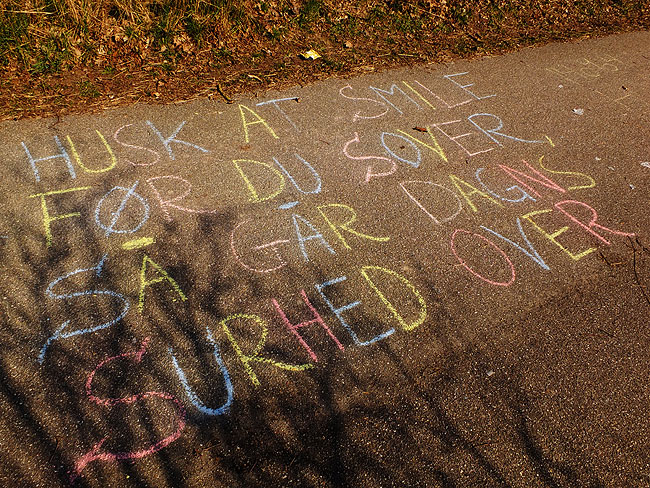 HUSK AT SMILE
FØR DU SOVER,
SÅ GÅR DAGNS
SURHED OVER